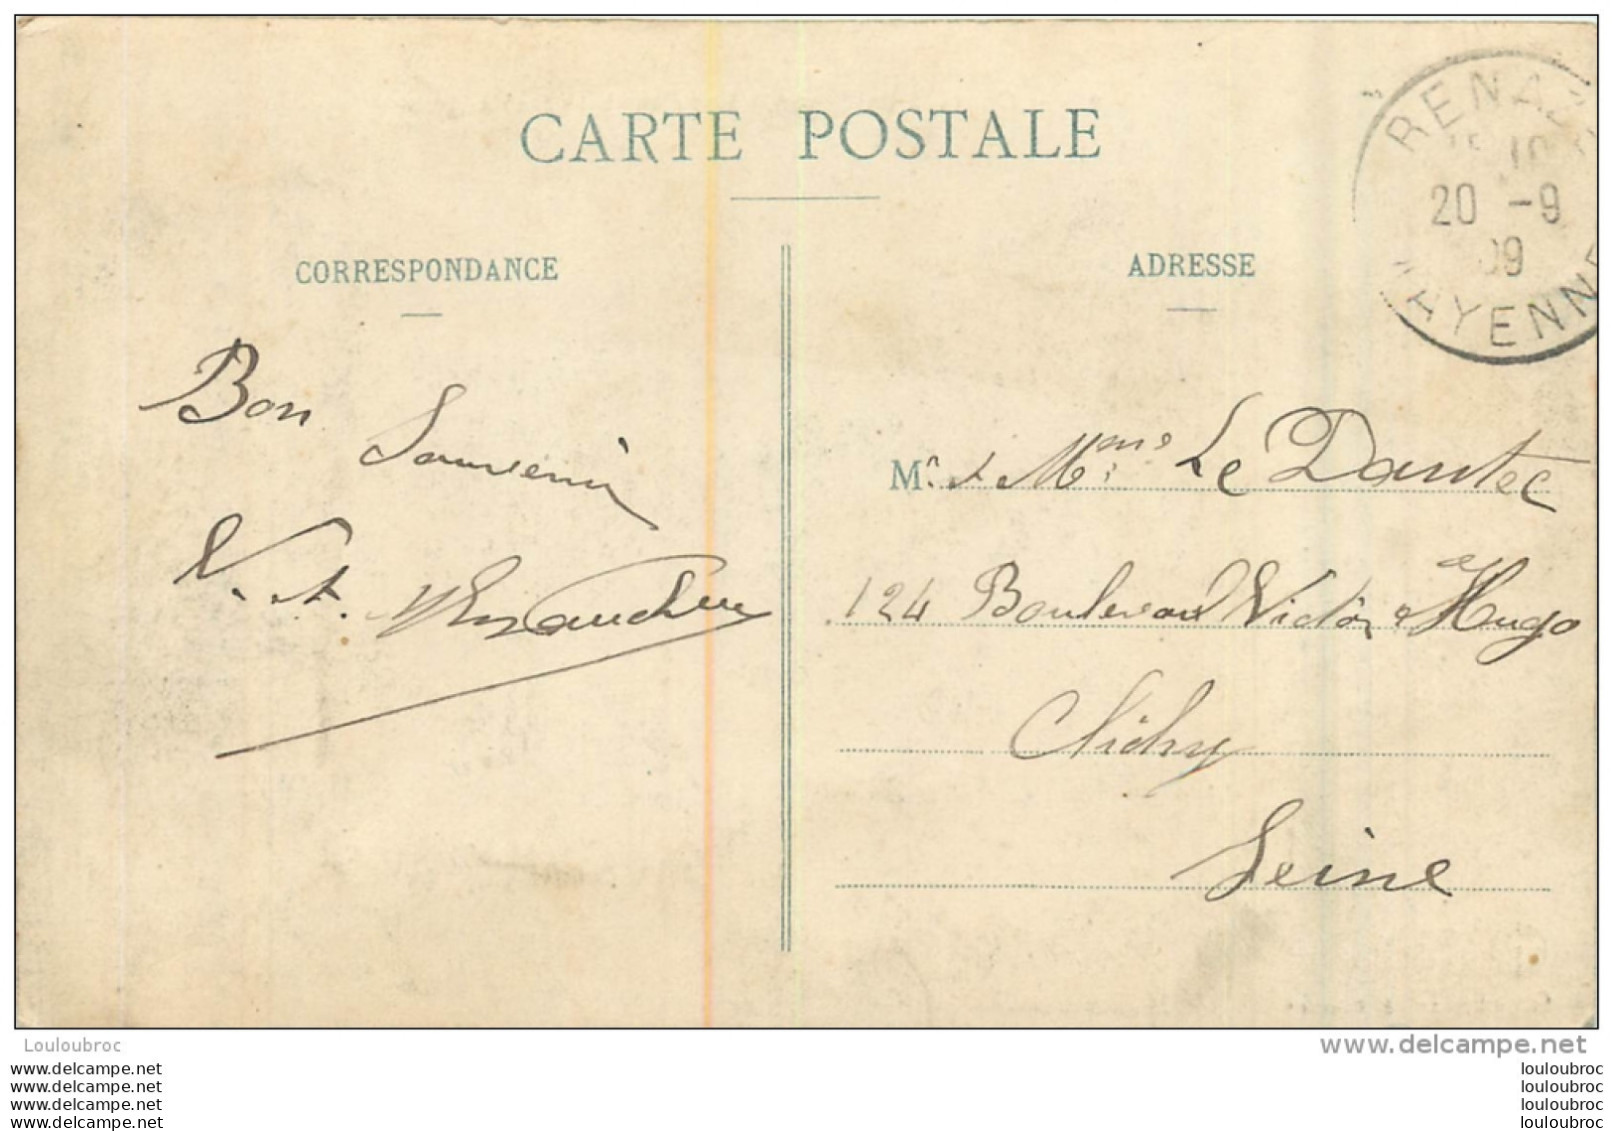 CARTE POSTALE
RENAZ
10
20 -9
09
MAYENNE
CORRESPONDANCE
ADRESSE
Bon
Souvenir
V. A.
Mr. & Mme Le Dantec
124 Boulevard Victor Hugo
Clichy
Seine
Louloubroc
www.delcampe.net
www.delcampe.net
www.delcampe.net
www.delcampe.net
www.delcampe.net
louloubroc
louloubroc
louloubroc
louloubroc